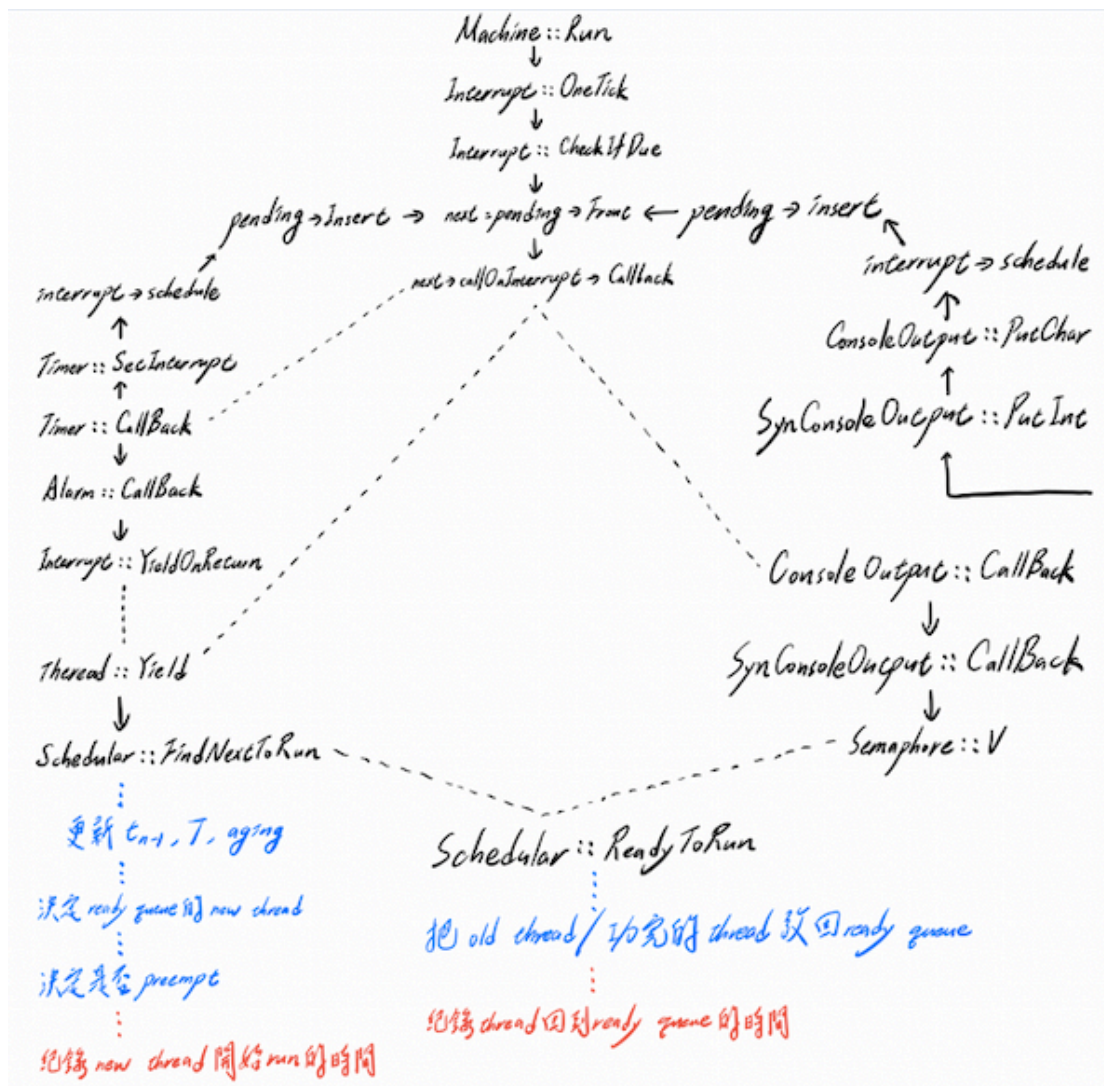 Machine :: Run
↓
Interrupt :: OneTick
↓
Interrupt :: CheckIfDue
↓
pending → Insert → next = pending → Front ← pending → insert
↓
next → callOnInterrupt → Callback
interrupt → schedule
↑
Timer :: SetInterrupt
↑
Timer :: CallBack
↓
Alarm :: CallBack
↓
Interrupt :: YieldOnReturn
Theread :: Yield
↓
Schedular :: FindNextToRun
更新 tn-1, T, aging
決定 ready queue 的 new thread
決定是否 preempt
紀錄 new thread 開始 run 的時間
interrupt → schedule
↑
ConsoleOutput :: PutChar
↑
SynConsoleOutput :: PutInt
ConsoleOutput :: CallBack
↓
SynConsoleOutput :: CallBack
↓
Semaphore :: V
Schedular :: ReadyToRun
把 old thread / 的 thread 放回 ready queue
紀錄 thread 回到 ready queue 的時間